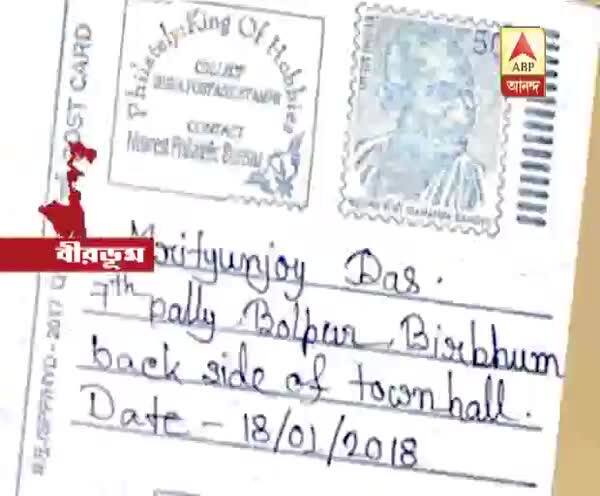 Philately:King Of Hobbies
COLLECT
CONTACT
Nearest Philatelic Bureau
50
ABP
আনন্দ
POST CARD
বীরভূম
Mrityunjoy Das.
7th pally, Bolpur, Birbhum
back side of town hall.
Date - 18/01/2018